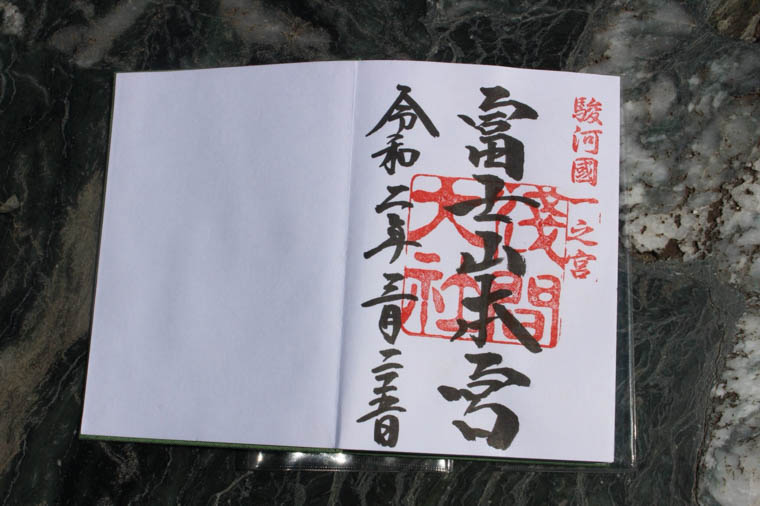 駿河國一之宮
富士山本宮
淺間大社
令和二年三月二十五日